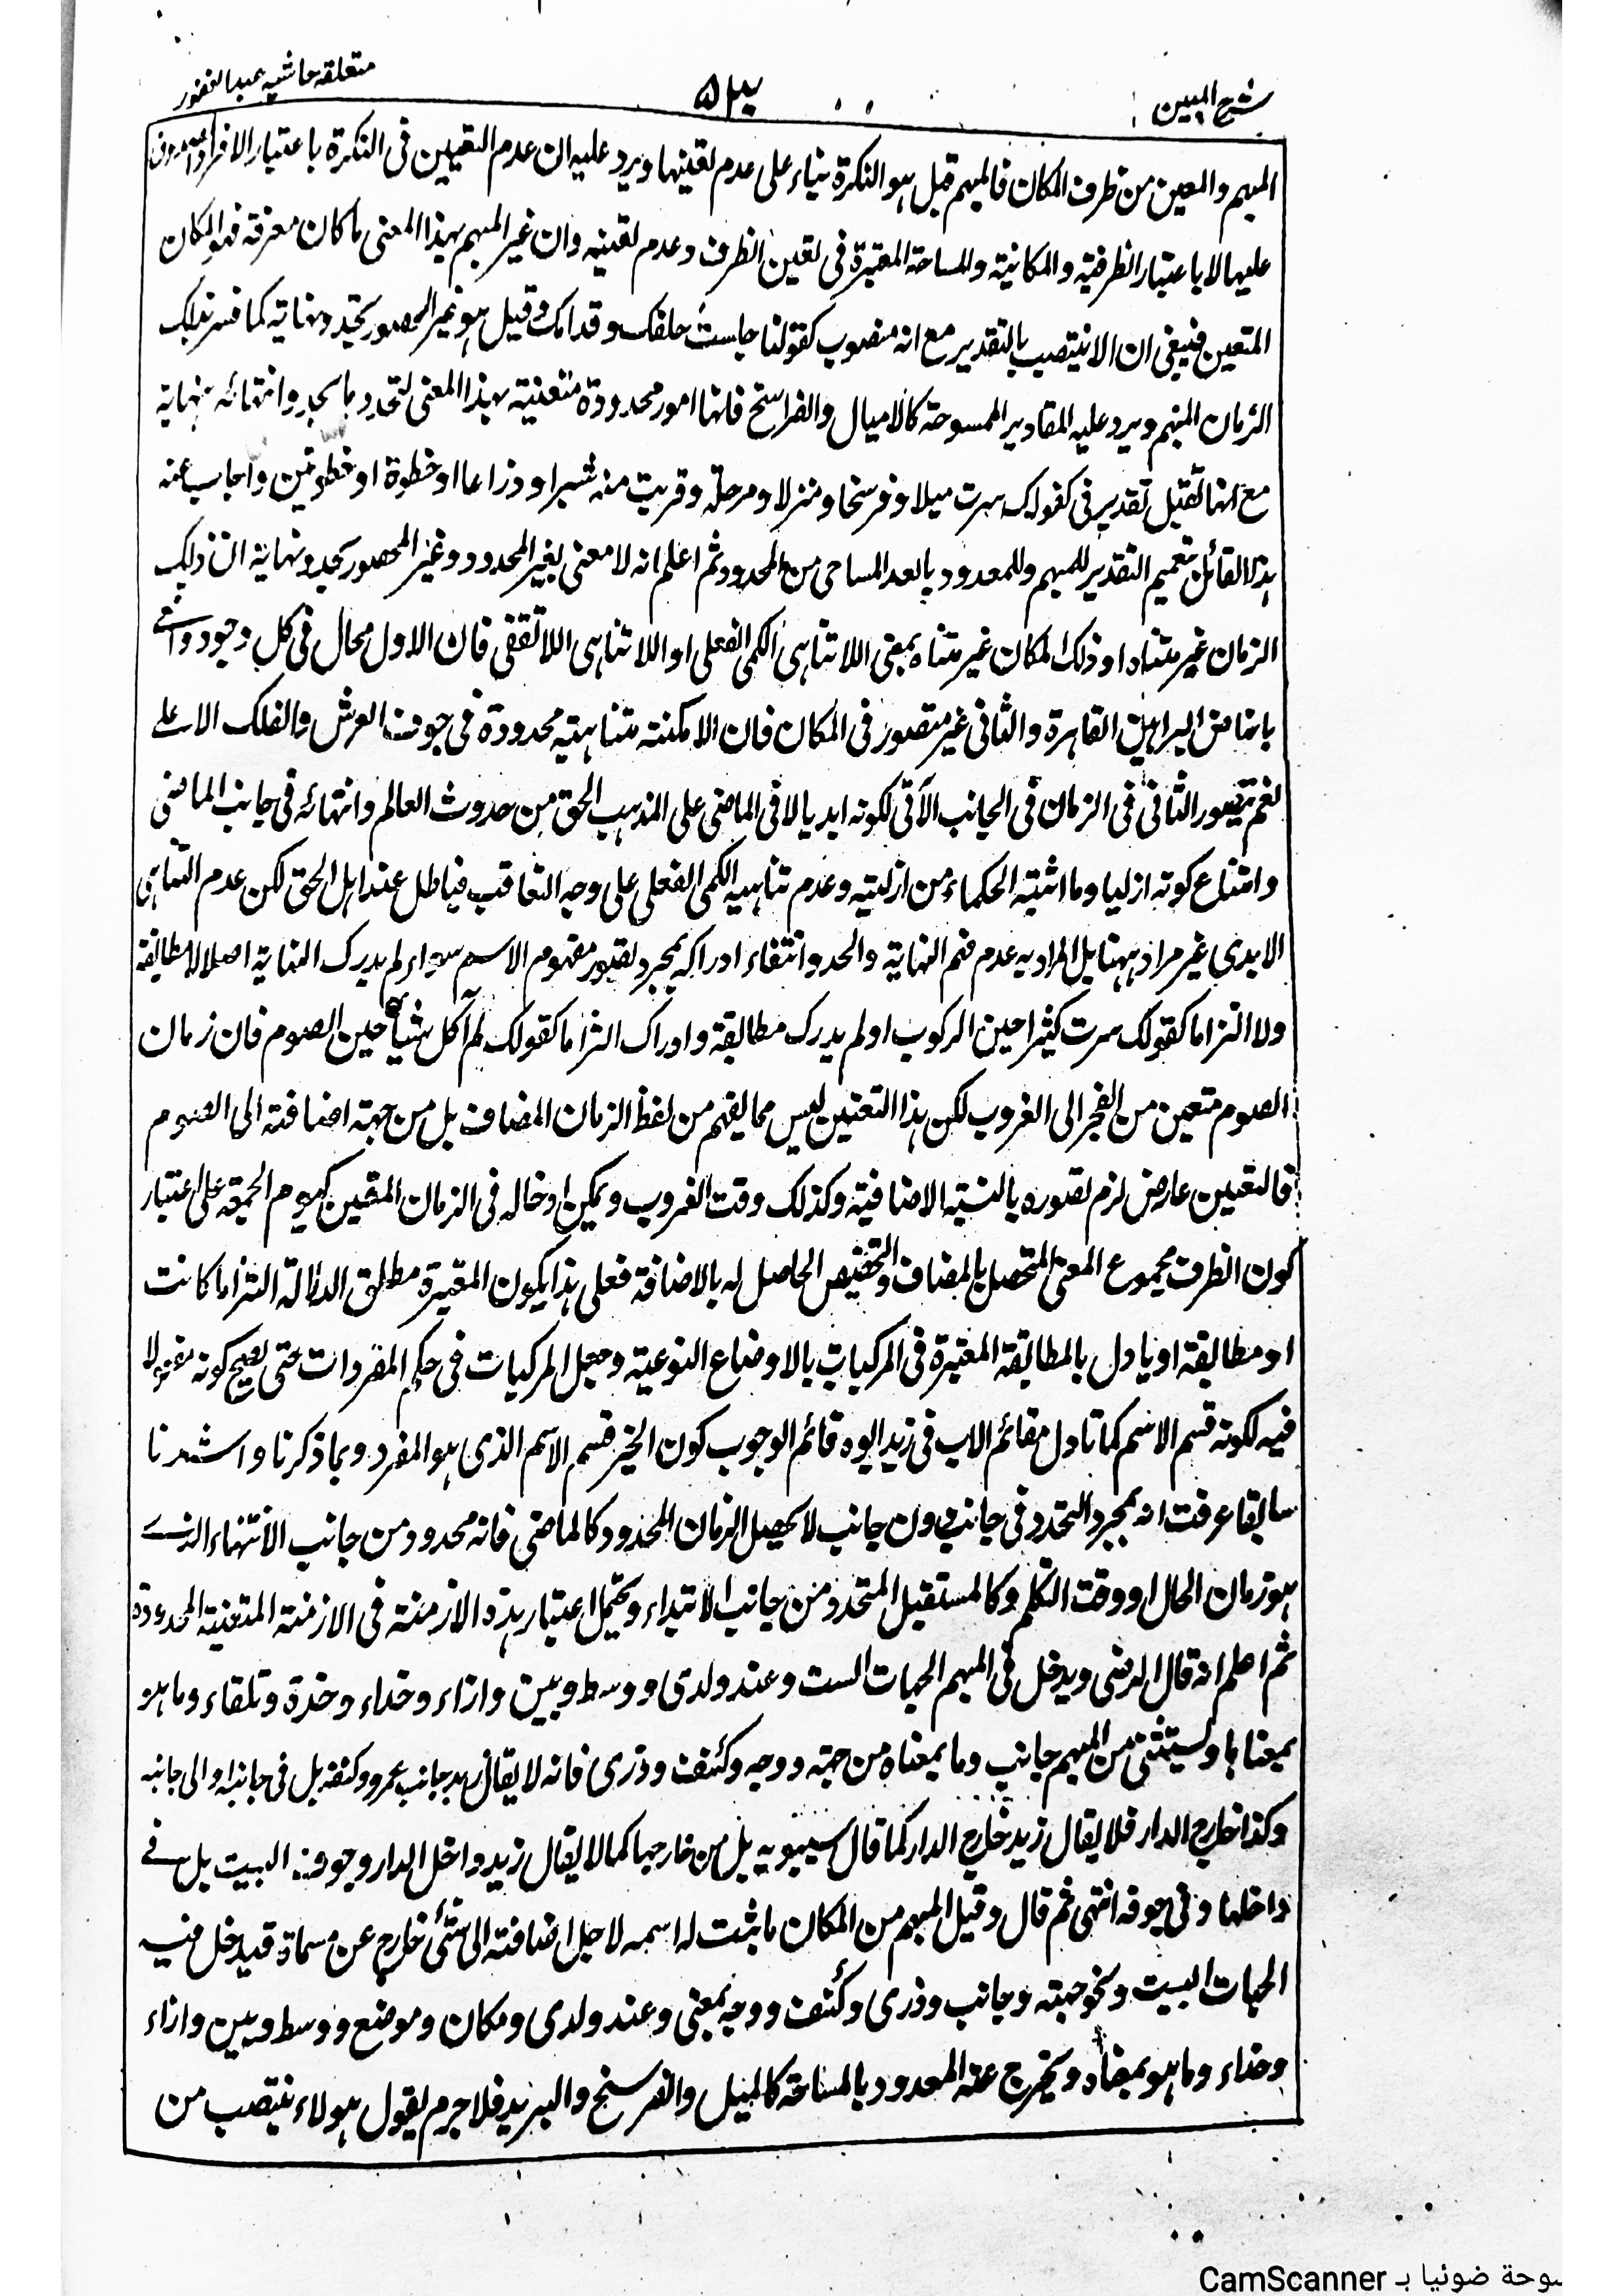 شرح المبين
۵۴
متعلقه حاشيه عبد الغفور
المبهم والمعين من ظرف المكان فالمبهم قيل هو النكرة بناء على عدم تعينها ويرد عليه ان عدم التعيين فى النكرة باعتبار الافراد
عليها لا باعتبار الظرفية والمكانية والمساحة المعتبرة فى تعين الظرف وعدم تعينه وان غير المبهم بهذا المعنى ما كان معرفة فهو المكان
المتعين فينبغى ان لا ينتصب بالتقدير مع انه منصوب كقولنا جلست خلفك وقدامك وقيل هو غير المحصور بحد ونهاية كما فسر بذلك
الزمان المبهم ويرد عليه المقادير الممسوحة كالاميال والفراسخ فانها امور محدودة متعينة بهذا المعنى لتحدد باسحد وانتهائه بنهاية
مع انها تقبل تقدير فى كقولك سرت ميلا وفرسخا ومنزلا ومرحلة وقربت منه شبرا وذراعا او خطوة او خطوتين واجاب عنه
هذا القائل بتعميم التقدير للمبهم وللمعدود بالعد المساحى من المحدود ثم اعلم انه لا معنى لغير المحدود وغير المحصور بحد ونهاية ان ذلك
الزمان غير متناه او ذلك المكان غير متناه بمعنى اللا تناهى الكمى الفعلى او اللا تناهى اللا تقفى فان الاول محال فى كل وجود واقعى
بانتاض البراهين القاهرة والثانى غير متصور فى المكان فان الامكنة متناهية محدودة فى جوف العرش والفلك الاعلے
نعم يتصور الثانى فى الزمان فى الجانب الآتى لكونه ابديا لا فى الماضى على المذهب الحق من حدوث العالم وانتهائه فى جانب الماضى
وامتناع كونه ازليا وما اثبته الحكماء من ازليته وعدم تناهيه الكمى الفعلى على وجه التعاقب فباطل عند اهل الحق لكن عدم التناهى
الابدى غير مراد ههنا بل المراد به عدم فهم النهاية والحد وانتفاء ادراكه بمجرد تصور مفهوم الاسم سواء لم يدرك النهاية اصلا لا مطابقة
ولا التزاما كقولك سرت كثيرا حين الركوب او لم يدرك مطابقة وادراك التزاما كقولك لم آكل شيأ حين الصوم فان زمان
الصوم متعين من الفجر الى الغروب لكن هذا التعين ليس مما يفهم من لفظ الزمان المضاف بل من جهة اضافته الى الصوم
فالتعين عارض لزم تصوره بالنسبة الاضافية وكذلك وقت الغروب ويمكن ادخاله فى الزمان المتعين كيوم الجمعة على اعتبار
كون الظرف مجموع المعنى المتحصل بالمضاف والتخصيص الحاصل له بالاضافة فعلى هذا يكون المعتبرة مطلق الدلالة التزاما كانت
او مطابقة او يادل بالمطابقة المعتبرة فى المركبات بالاوضاع النوعية وجعل المركبات فى حكم المفردات حتى يصح كونه مفعولا
فيه لكونه قسم الاسم كما تاول مقائم الاب فى زيد ابوه قائم لوجوب كون الخبر قسم الاسم الذى هو المفرد وبما ذكرنا واشرنا
سابقا عرفت انه بمجرد التحدد فى جانب دون جانب لا يحصل الزمان المحدود كالماضى فانه محدود من جانب الانتهاء الذے
هو زمان الحال او وقت التكلم وكالمستقبل المتحدد من جانب الابتداء ويحتمل اعتبار هذه الازمنة فى الازمنة المتعينة المحدودة
ثم اعلم انه قال الرضى ويدخل فى المبهم الجهات الست وعند ولدى ووسط وبين وازاء وحذاء وحذة وتلقاء وما هو
بمعناها ويستثنى من المبهم جانب وما بمعناه من جهة ووجه وكنف وذرى فانه لا يقال زيد جانب عمرو وكنفه بل فى جانبه او الى جانبه
وكذا خارج الدار فلا يقال زيد خارج الدار كما قال سيبويه بل من خارجها كما لا يقال زيد داخل الدار وجوف البيت بل فے
داخلها وفى جوفه انتهى ثم قال وقيل المبهم من المكان ما ثبت له اسمه لاجل اضافته الى شئ خارج عن مسماه فيدخل فيه
الجهات الست ونحو جهة وجانب وذرى وكنف ووجه بمعنى وعند ولدى ومكان وموضع ووسط وبين وازاء
وحذاء وما هو بمعناه ويخرج عنه المعدود بالمساحة كالميل والفرسخ والبريد فلا جرم يقول هولاء ينتصب من
سوحة ضوئيا بـ CamScanner